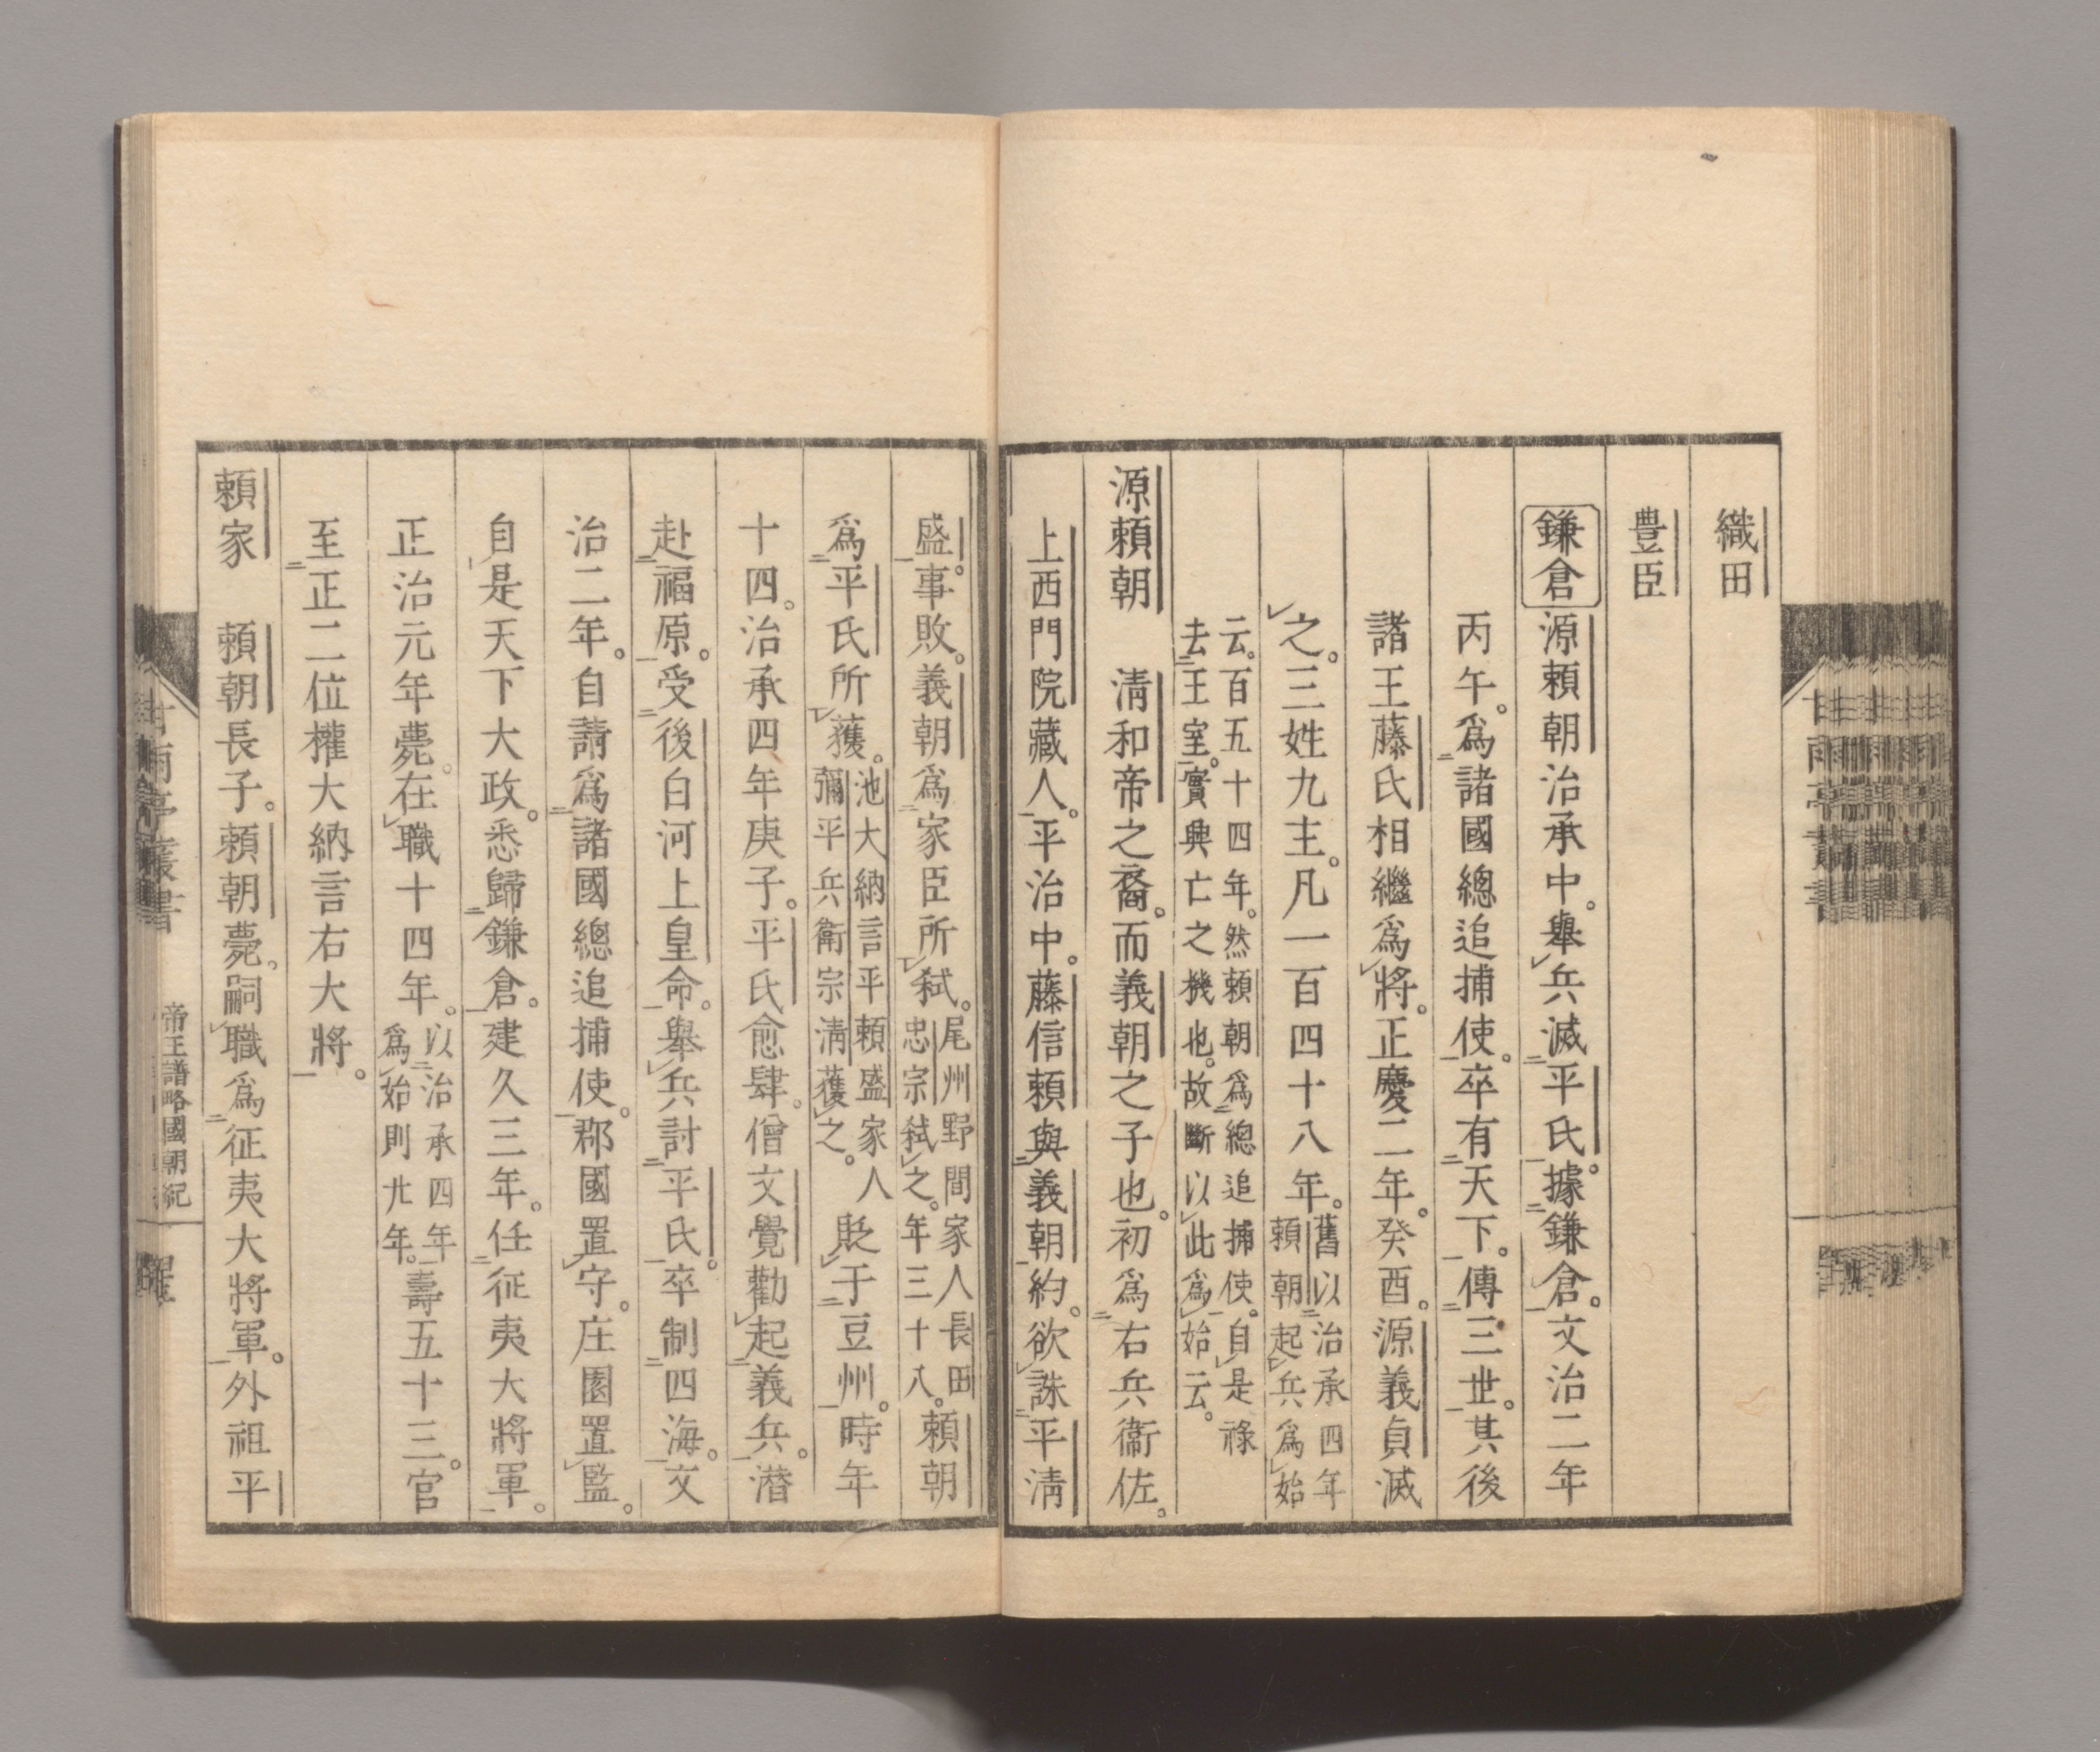 織田
豊臣
鎌倉 源頼朝治承中。舉兵滅平氏。據鎌倉。文治二年
丙午。爲諸國總追捕使。卒有天下。傳三世。其後
諸王藤氏相繼爲將。正慶二年。癸酉。源義貞滅
之。三姓九主。凡一百四十八年。
舊以治承四年
頼朝起兵爲始
云。百五十四年。然頼朝爲總追捕使。自是祿
去王室。實興亡之機也。故斷以此爲始云。
源頼朝 淸和帝之裔。而義朝之子也。初爲右兵衞佐。
上西門院藏人。平治中。藤信頼與義朝約。欲誅平淸
盛。事敗。義朝爲家臣所弑。
尾州野間家人長田
忠宗弑之。年三十八。
頼朝
爲平氏所獲。
池大納言平頼盛家人
彌平兵衞宗淸獲之。
貶于豆州。時年
十四。治承四年庚子。平氏愈肆。僧文覺勸起義兵。潛
赴福原。受後白河上皇命。舉兵討平氏。卒制四海。文
治二年。自請爲諸國總追捕使。郡國置守。庄園置監。
自是天下大政。悉歸鎌倉。建久三年。任征夷大將軍。
正治元年薨。在職十四年。
以治承四年
爲始則廿年。
壽五十三。官
至正二位權大納言右大將。
頼家 頼朝長子。頼朝薨。嗣職爲征夷大將軍。外祖平
甘雨亭叢書
帝王譜略國朝紀